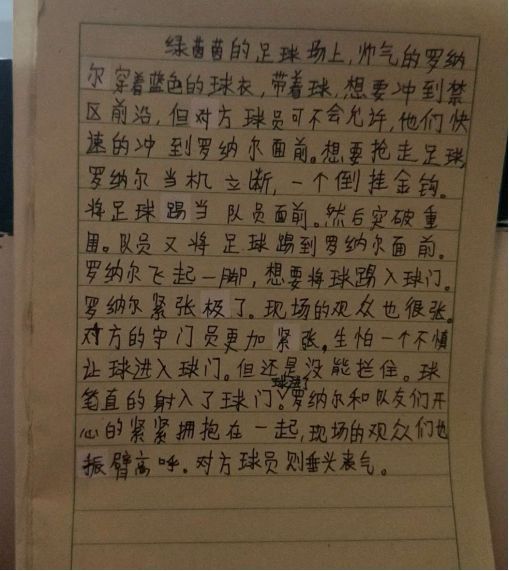 绿茵茵的足球场上,帅气的罗纳
尔穿着蓝色的球衣,带着球,想要冲到禁
区前沿,但对方球员可不会允许,他们快
速的冲到罗纳尔面前。想要抢走足球,
罗纳尔当机立断,一个倒挂金钩。
将足球踢当队员面前。然后突破重
围。队员又将足球踢到罗纳尔面前。
罗纳尔飞起一脚,想要将球踢入球门。
罗纳尔紧张极了。现场的观众也很张。
对方的守门员更加紧张。生怕一个不慎
让球进入球门。但还是没能拦住。球
笔直的射入了球门。球进了罗纳尔和队友们开
心的紧紧拥抱在一起,现场的观众们也
振臂高呼。对方球员则垂头丧气。